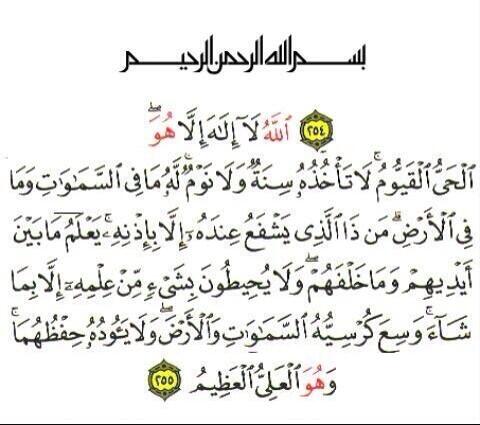 بسم الله الرحمن الرحيم
٢٥٤ ٱللَّهُ لَآ إِلَٰهَ إِلَّا هُوَۖ
ٱلْحَىُّ ٱلْقَيُّومُۚ لَا تَأْخُذُهُۥ سِنَةٌ وَلَا نَوْمٌۚ لَّهُۥ مَا فِى ٱلسَّمَٰوَٰتِ وَمَا
فِى ٱلْأَرْضِۗ مَن ذَا ٱلَّذِى يَشْفَعُ عِندَهُۥٓ إِلَّا بِإِذْنِهِۦۚ يَعْلَمُ مَا بَيْنَ
أَيْدِيهِمْ وَمَا خَلْفَهُمْۖ وَلَا يُحِيطُونَ بِشَىْءٍ مِّنْ عِلْمِهِۦٓ إِلَّا بِمَا
شَآءَۚ وَسِعَ كُرْسِيُّهُ ٱلسَّمَٰوَٰتِ وَٱلْأَرْضَۖ وَلَا يَـُٔودُهُۥ حِفْظُهُمَاۚ
وَهُوَ ٱلْعَلِىُّ ٱلْعَظِيمُ ٢٥٥